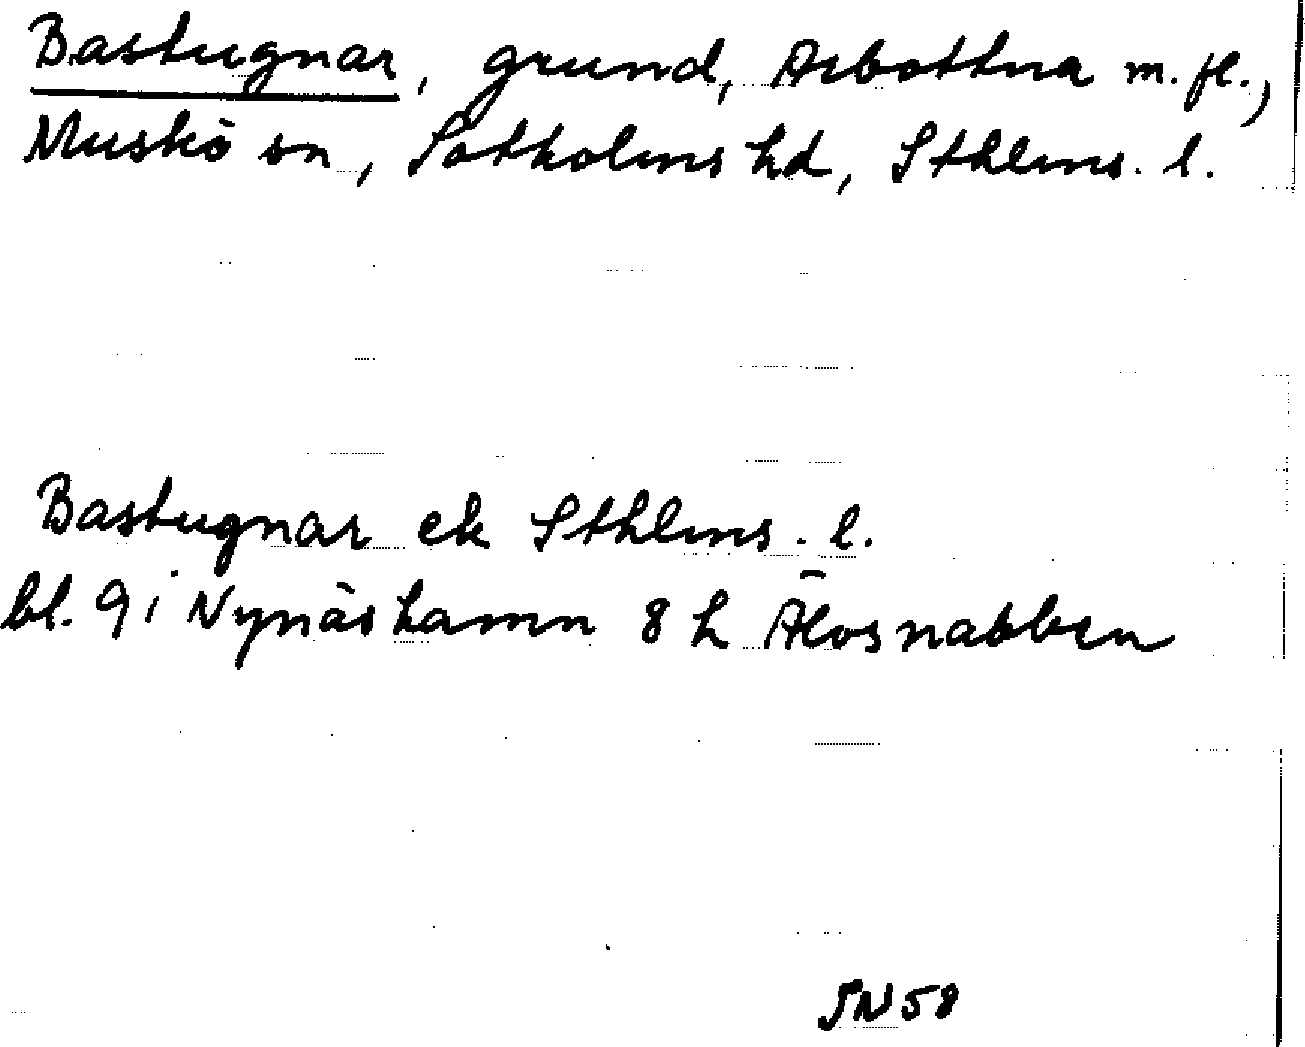 Bastugnar, grund, Arbottna m.fl.,
Muskö sn, Sotholms hd, Sthlms. l.
Bastugnar ek Sthlms. l.
bl. 9 i Nynäshamn 8 h Älvsnabben
SN58